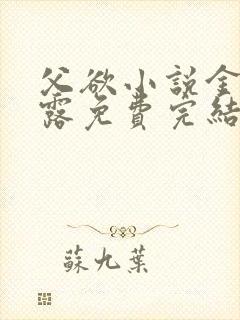 父欲小说金
露免費完結
蘇九葉